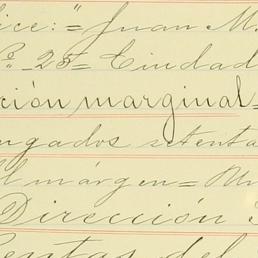 ice: "Juan M.
Nº 25 = Ciudad
ción marginal =
ngados setenta
l márgen = Un
Dirección
entas del